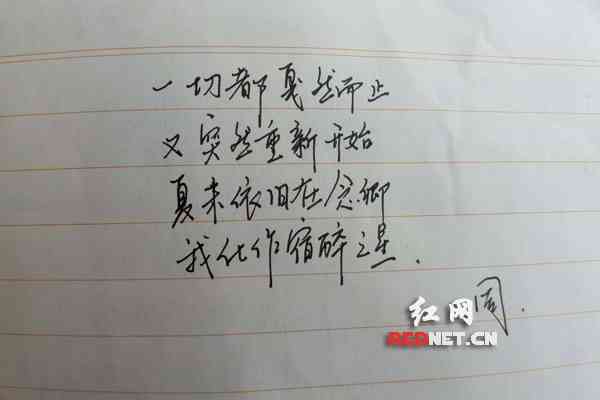 一切都戛然而止
又突然重新开始
夏来依旧在念卿
我化作宿醉之星.
周.
红网
REDNET.CN